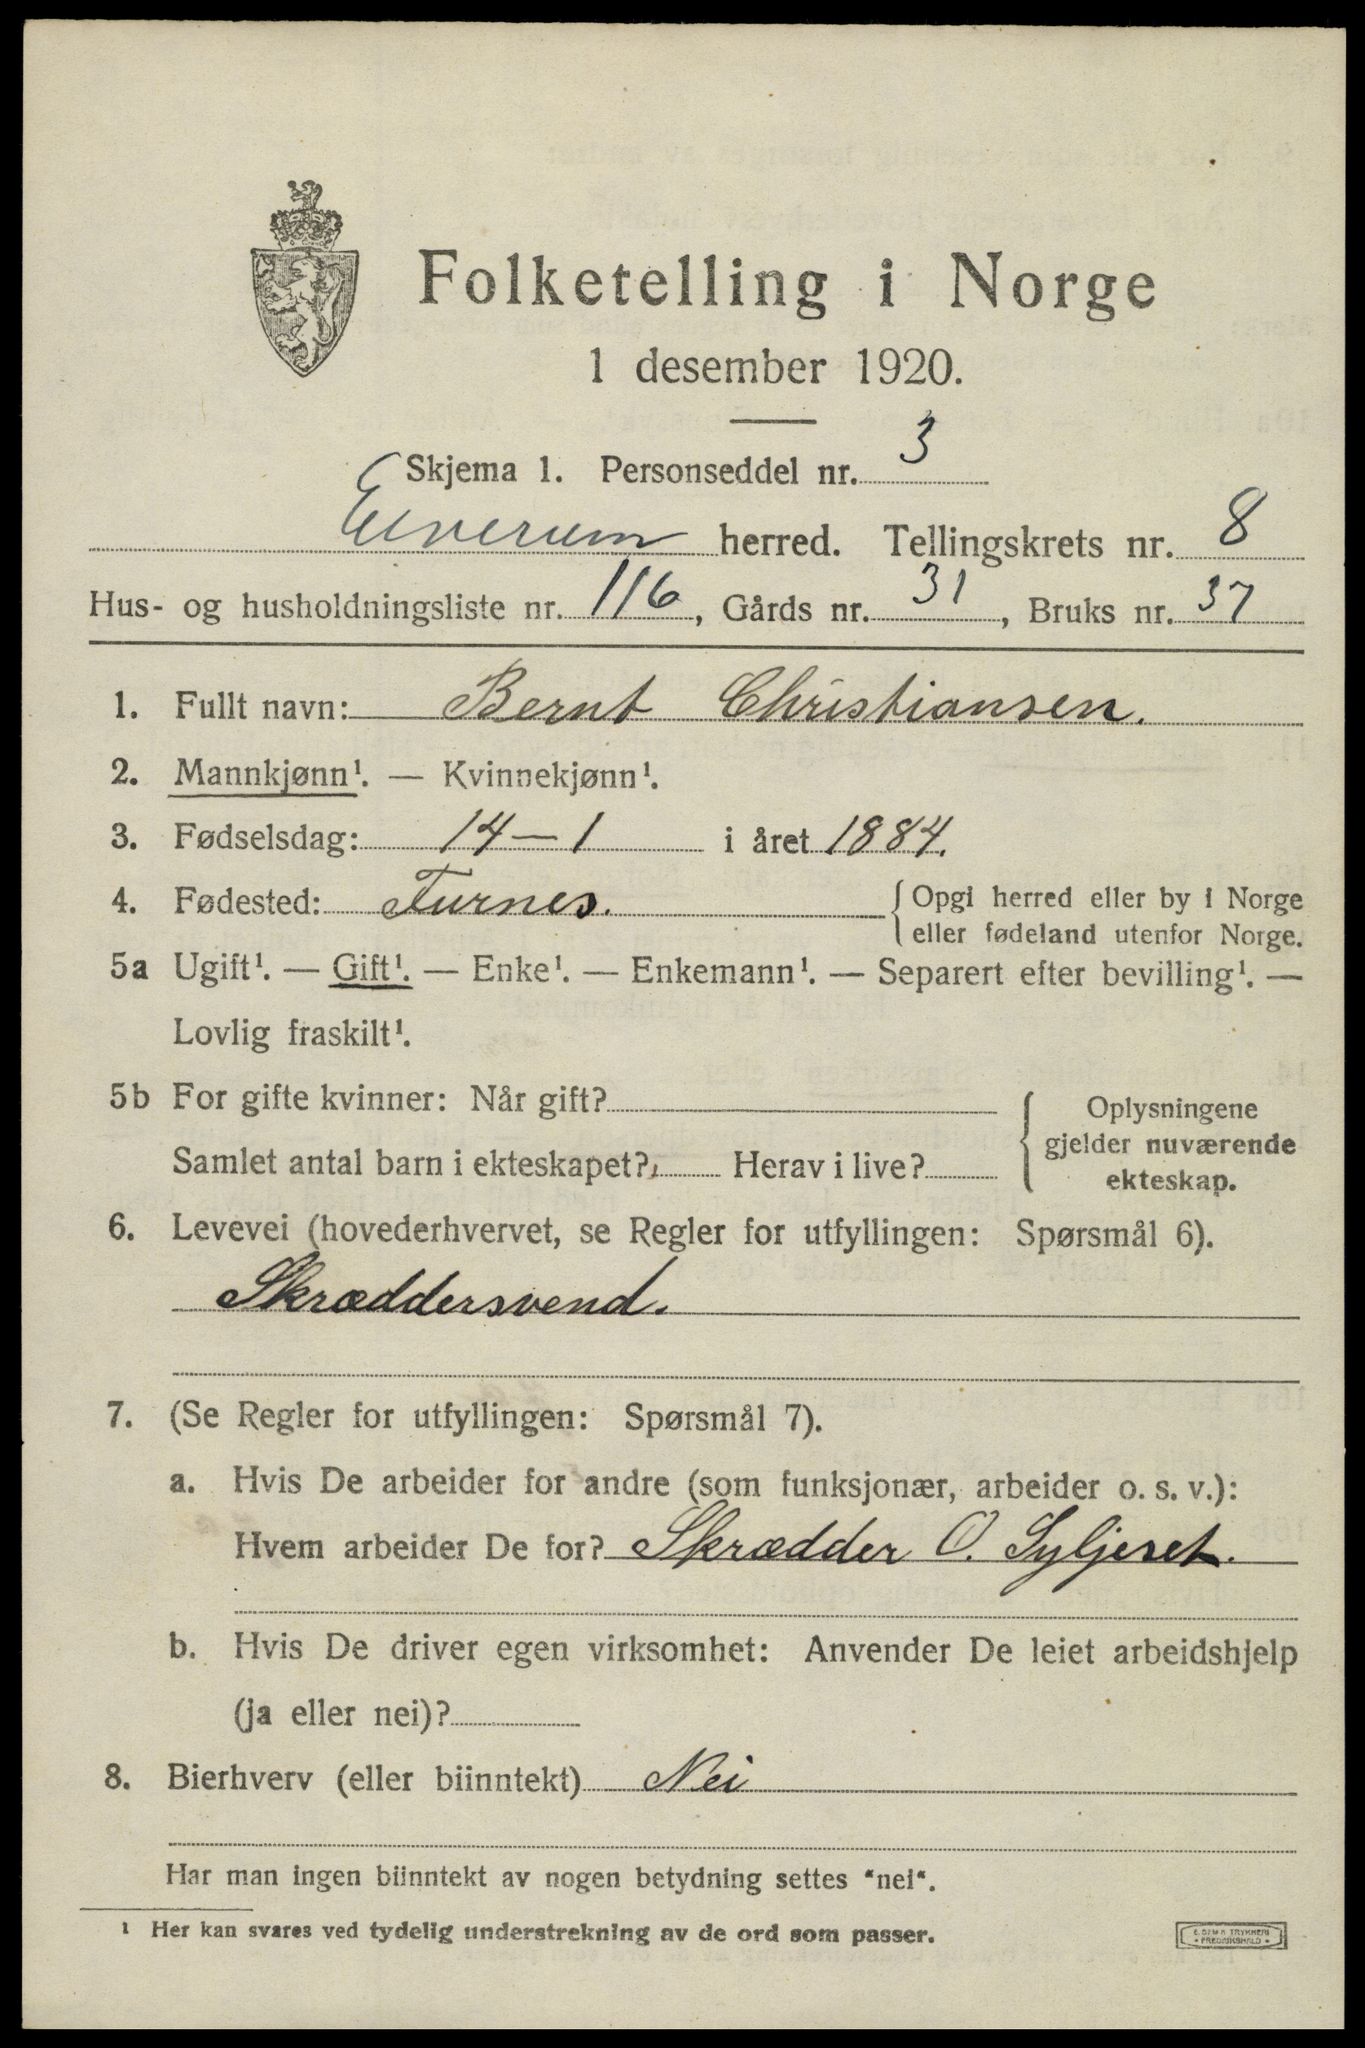 Folketelling i Norge
1 desember 1920.
Skjema 1. Personseddel nr. 3
Elverum herred. Tellingskrets nr. 8
Hus- og husholdningsliste nr. 116, Gårds nr. 31, Bruks nr. 37
1. Fullt navn: Bernt Christiansen.
2. Mannkjønn¹. — Kvinnekjønn¹.
3. Fødselsdag: 14 — 1 i året 1884.
4. Fødested: Furnes. { Opgi herred eller by i Norge
eller fødeland utenfor Norge.
5a Ugift¹. — Gift¹. — Enke¹. — Enkemann¹. — Separert efter bevilling¹. —
Lovlig fraskilt¹.
5b For gifte kvinner: Når gift?
Samlet antal barn i ekteskapet? Herav i live?
{ Oplysningene
gjelder nuværende
ekteskap.
6. Levevei (hovederhvervet, se Regler for utfyllingen: Spørsmål 6).
Skræddersvend.
7. (Se Regler for utfyllingen: Spørsmål 7).
a. Hvis De arbeider for andre (som funksjonær, arbeider o. s. v.):
Hvem arbeider De for? Skrædder O. Syljeset.
b. Hvis De driver egen virksomhet: Anvender De leiet arbeidshjelp
(ja eller nei)?
8. Bierhverv (eller biinntekt) Nei
Har man ingen biinntekt av nogen betydning settes "nei".
¹ Her kan svares ved tydelig understrekning av de ord som passer.
TRYKKERI
FREDRIKSHALD